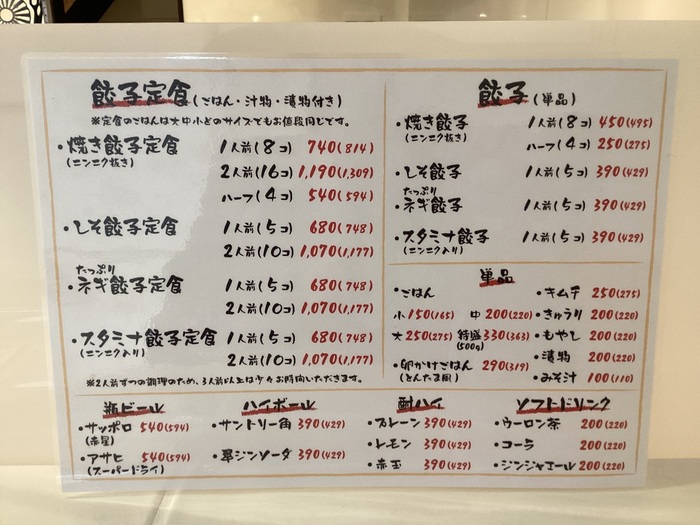 餃子定食(ごはん・汁物・漬物付き)
※定食のごはんは大中小どのサイズでもお値段同じです。
・焼き餃子定食 1人前(8コ) 740(814)
(ニンニク抜き)
2人前(16コ) 1,190(1,309)
ハーフ(4コ) 540(594)
・しそ餃子定食 1人前(5コ) 680(748)
2人前(10コ) 1,070(1,177)
たっぷり
・ネギ餃子定食 1人前(5コ) 680(748)
2人前(10コ) 1,070(1,177)
・スタミナ餃子定食 1人前(5コ) 680(748)
(ニンニク入り)
2人前(10コ) 1,070(1,177)
※2人前ずつの調理のため、3人前以上は少々お時間いただきます。
餃子(単品)
・焼き餃子 1人前(8コ) 450(495)
(ニンニク抜き)
ハーフ(4コ) 250(275)
・しそ餃子 1人前(5コ) 390(429)
たっぷり
・ネギ餃子 1人前(5コ) 390(429)
・スタミナ餃子 1人前(5コ) 390(429)
(ニンニク入り)
単品
・ごはん
小150(165) 中200(220)
大250(275) 特盛330(363)
(500g)
・卵かけごはん 290(319)
(とんたま風)
・キムチ 250(275)
・きゅうり 200(220)
・もやし 200(220)
・漬物 200(220)
・みそ汁 100(110)
瓶ビール
・サッポロ 540(594)
(赤星)
・アサヒ 540(594)
(スーパードライ)
ハイボール
・サントリー角 390(429)
・翠ジンソーダ 390(429)
酎ハイ
・プレーン 390(429)
・レモン 390(429)
・赤玉 390(429)
ソフトドリンク
・ウーロン茶 200(220)
・コーラ 200(220)
・ジンジャエール 200(220)